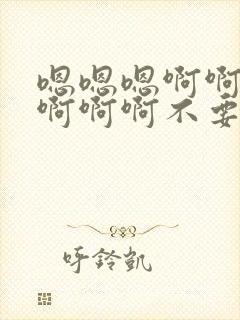 嗯嗯嗯啊啊
啊啊啊不要
呼铃凯